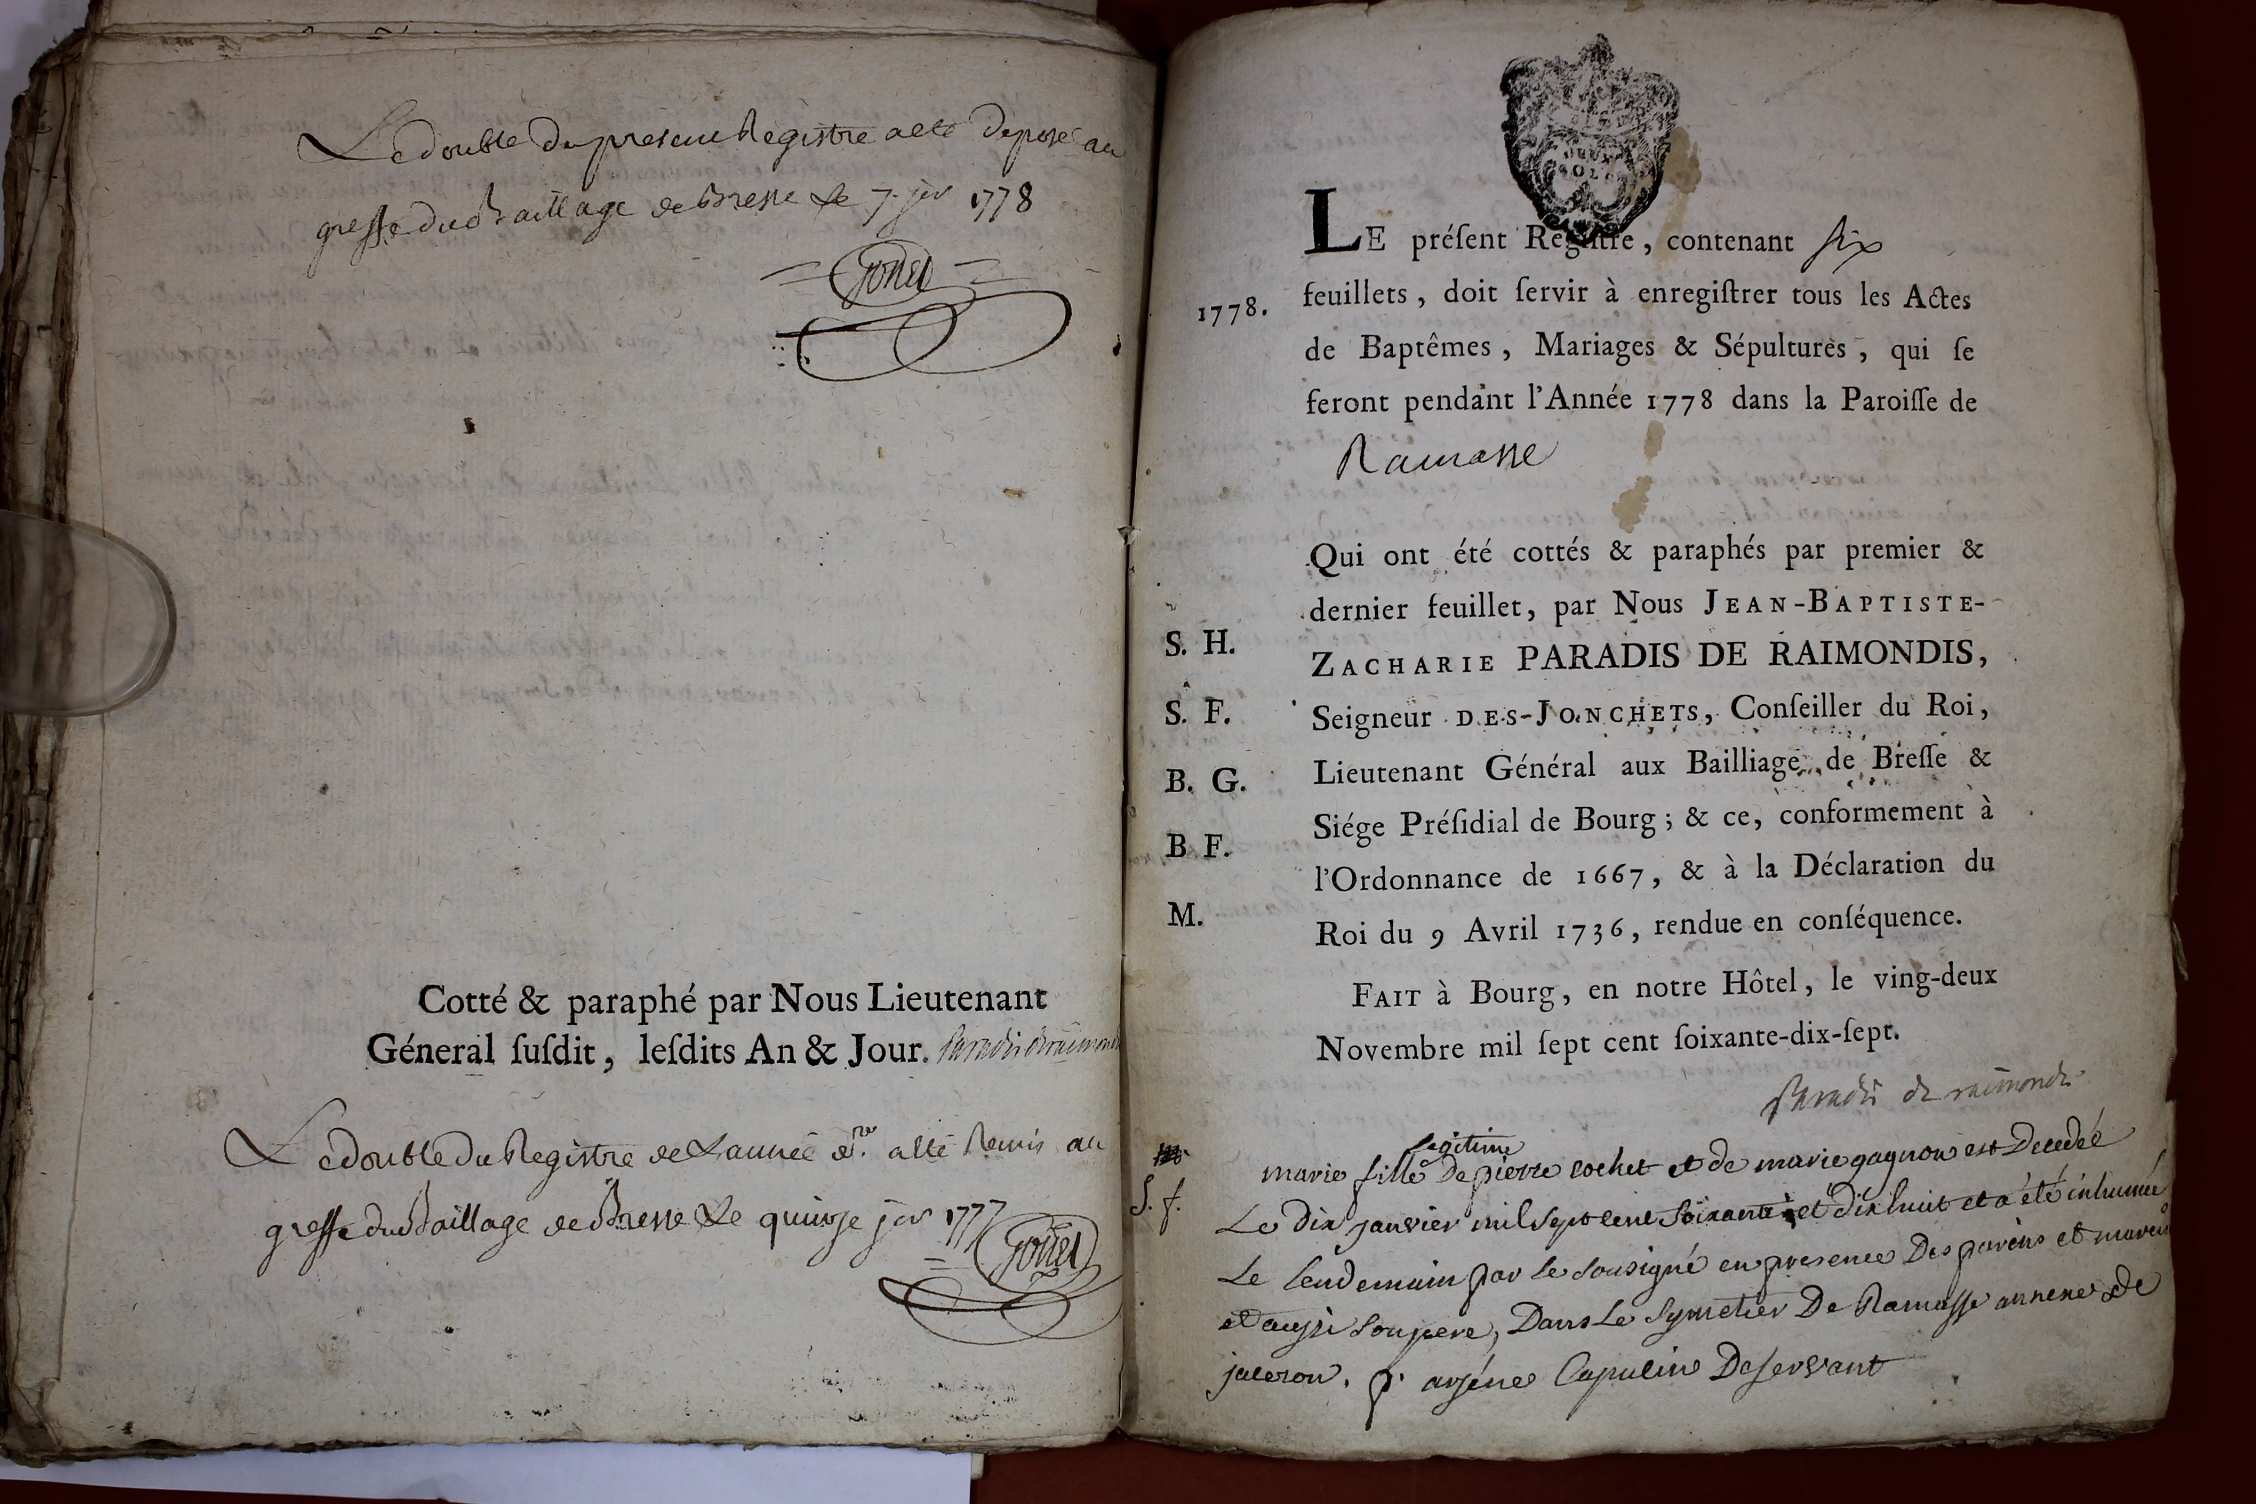 Le double du present Registre a eté deposé au
greffe du Baillage de Bresse Le 7 jer 1778
Gonet
Cotté & paraphé par Nous Lieutenant
Géneral ſuſdit, leſdits An & Jour. Paradis de raimondis
Le double du Registre de L'année der. a été Remis au
greffe du Baillage de Bresse Le quinze jer 1777
Gonet
DEUX
SOLS
LE préſent Regiſtre, contenant six
1778. feuillets, doit ſervir à enregiſtrer tous les Actes
de Baptêmes, Mariages & Sépultures, qui ſe
feront pendant l'Année 1778 dans la Paroiſſe de
Ramasse
Qui ont été cottés & paraphés par premier &
dernier feuillet, par Nous JEAN-BAPTISTE-
S. H. ZACHARIE PARADIS DE RAIMONDIS,
S. F. Seigneur DES-JONCHETS, Conſeiller du Roi,
B. G. Lieutenant Général aux Bailliage de Breſſe &
B F. Siége Préſidial de Bourg ; & ce, conformement à
l'Ordonnance de 1667, & à la Déclaration du
M. Roi du 9 Avril 1736, rendue en conſéquence.
FAIT à Bourg, en notre Hôtel, le ving-deux
Novembre mil ſept cent ſoixante-dix-ſept.
Paradis de raimondis
legitime
marie fille de pierre cochet et de marie gagnon est Decedée
S. f. Le dix janvier mil sept cent soixante et dix huit et a été inhumée
Le lendemain par le sousigné en presence Des parens et
et aussi son pere, Dans Le symetier De Ramasse annexe de
jaceron. p. arséne Capucin Deservant